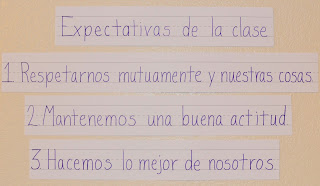 Expectativas de la clase
1. Respetarnos mutuamente y nuestras cosas.
2. Mantenemos una buena actitud.
3. Hacemos lo mejor de nosotros.